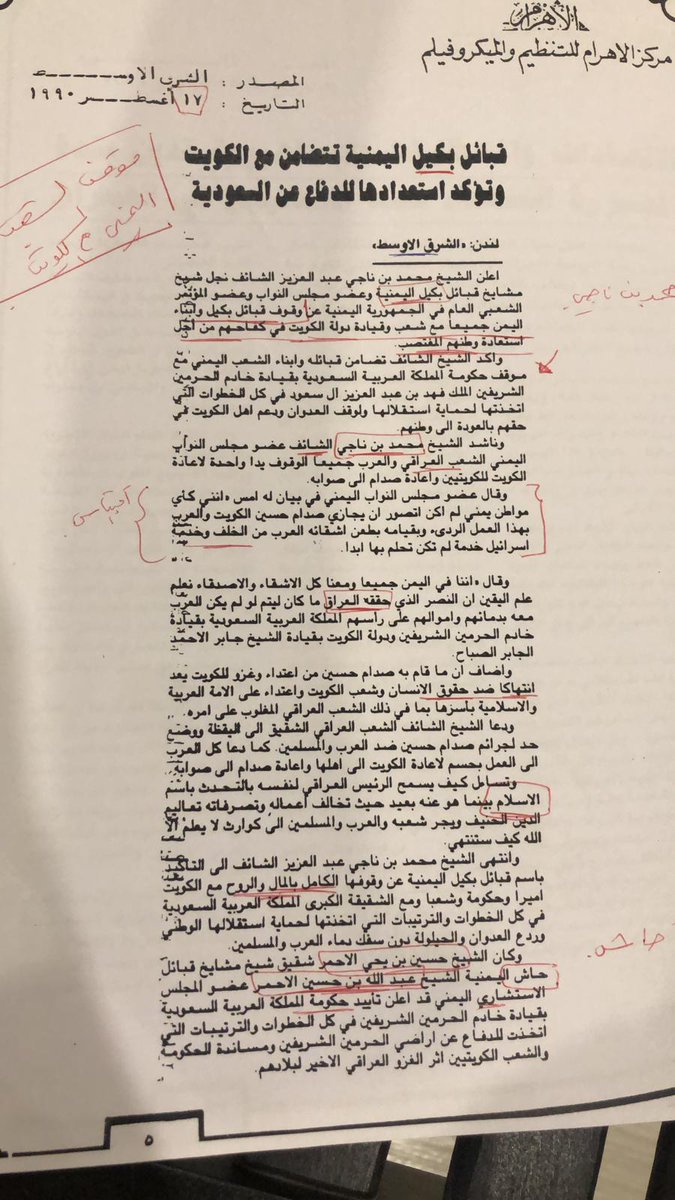 الأهرام
مركز الاهرام للتنظيم والميكروفيلم
المصدر : الشرق الاوسط
التاريخ : ١٧ أغسطس ١٩٩٠
قبائل بكيل اليمنية تتضامن مع الكويت
وتؤكد استعدادها للدفاع عن السعودية
موقف الشعب
اليمني مع الكويت
محمد بن ناجي
لندن: «الشرق الاوسط»
اعلن الشيخ محمد بن ناجي عبد العزيز الشائف نجل شيخ
مشايخ قبائل بكيل اليمنية وعضو مجلس النواب وعضو المؤتمر
الشعبي العام في الجمهورية اليمنية عن وقوف قبائل بكيل وأبناء
اليمن جميعاً مع شعب وقيادة دولة الكويت في كفاحهم من أجل
استعادة وطنهم المغتصب.
واكد الشيخ الشائف تضامن قبائله وابناء الشعب اليمني مع
موقف حكومة المملكة العربية السعودية بقيادة خادم الحرمين
الشريفين الملك فهد بن عبد العزيز ال سعود في كل الخطوات التي
اتخذتها لحماية استقلالها ولوقف العدوان ودعم اهل الكويت في
حقهم بالعودة الى وطنهم.
وناشد الشيخ محمد بن ناجي الشائف عضو مجلس النواب
اليمني الشعب العراقي والعرب جميعاً الوقوف يدا واحدة لاعادة
الكويت للكويتيين واعادة صدام الى صوابه.
وقال عضو مجلس النواب اليمني في بيان له امس «انني كأي
مواطن يمني لم اكن اتصور ان يجازي صدام حسين الكويت والعرب
بهذا العمل الردىء وبقيامه بطعن اشقائه العرب من الخلف وخدمة
اسرائيل خدمة لم تكن تحلم بها ابدا.
اقتباس
وقال «اننا في اليمن جميعا ومعنا كل الاشقاء والاصدقاء نعلم
علم اليقين ان النصر الذي حققه العراق ما كان ليتم لو لم يكن العرب
معه بدمائهم واموالهم على رأسهم المملكة العربية السعودية بقيادة
خادم الحرمين الشريفين ودولة الكويت بقيادة الشيخ جابر الاحمد
الجابر الصباح.
واضاف أن ما قام به صدام حسين من اعتداء وغزو للكويت يعد
انتهاكا ضد حقوق الانسان وشعب الكويت واعتداء على الامة العربية
والاسلامية بأسرها بما في ذلك الشعب العراقي المغلوب على امره.
ودعا الشيخ الشائف الشعب العراقي الشقيق الى اليقظة ووضع
حد لجرائم صدام حسين ضد العرب والمسلمين. كما دعا كل العرب
الى العمل بحسم لاعادة الكويت الى اهلها واعادة صدام الى صوابه.
وتساءل كيف يسمح الرئيس العراقي لنفسه بالتحدث باسم
الاسلام بينما هو عنه بعيد حيث تخالف أعماله وتصرفاته تعاليم
الدين الحنيف ويجر شعبه والعرب والمسلمين الى كوارث لا يعلم الا
الله كيف ستنتهي.
وانتهى الشيخ محمد بن ناجي عبد العزيز الشائف الى التأكيد
باسم قبائل بكيل اليمنية عن وقوفها الكامل بالمال والروح مع الكويت
أميرا وحكومة وشعبا ومع الشقيقة الكبرى المملكة العربية السعودية
في كل الخطوات والترتيبات التي اتخذتها لحماية استقلالها الوطني
وردع العدوان والحيلولة دون سفك دماء العرب والمسلمين.
وكان الشيخ حسين بن يحي الاحمر شقيق شيخ مشايخ قبائل
حاش اليمنية الشيخ عبد الله بن حسين الاحمر عضو المجلس
الاستشاري اليمني قد اعلن تأييد حكومة المملكة العربية السعودية
بقيادة خادم الحرمين الشريفين في كل الخطوات والترتيبات التي
اتخذت للدفاع عن اراضي الحرمين الشريفين ومساندة الحكومة
والشعب الكويتيين اثر الغزو العراقي الاخير لبلادهم.
حاش
٥